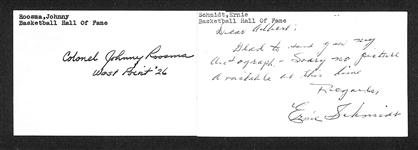 Roosma,Johnny
Basketball Hall Of Fame
Colonel Johnny Roosma
West Point '26
Schmidt,Ernie
Basketball Hall Of Fame
Dear Albert:
Glad to send you my
autograph - Sorry no picture
available at this time
Regards,
Ernie Schmidt